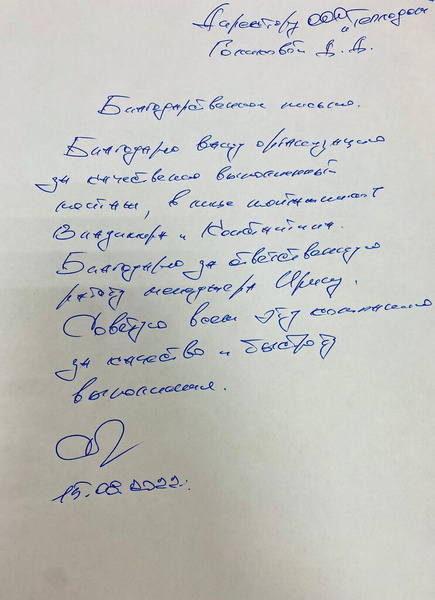 Директору ООО "Теплодом"
Голиковой Д. Д.
Благодарственное письмо.
Благодарю вашу организацию
за качественно выполненный
монтаж, в лице монтажников
Владимира и Константина.
Благодарю за ответственную
работу менеджера Ирину.
Советую всем эту компанию
за качество и быстроту
выполнения.
15.08.2022г.